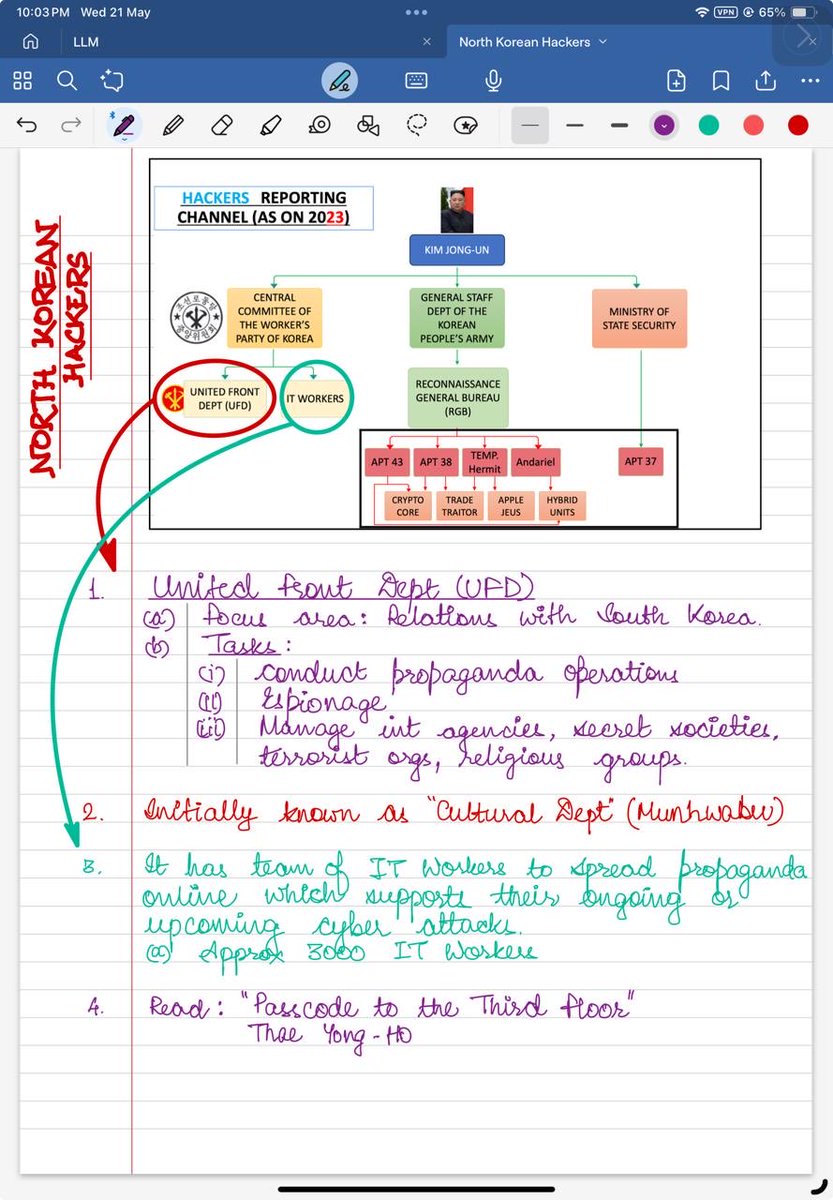 10:03 PM Wed 21 May
VPN 65%
LLM
North Korean Hackers
NORTH KOREAN
HACKERS
HACKERS REPORTING
CHANNEL (AS ON 2023)
KIM JONG-UN
CENTRAL
COMMITTEE OF
THE WORKER'S
PARTY OF KOREA
GENERAL STAFF
DEPT OF THE
KOREAN
PEOPLE'S ARMY
MINISTRY OF
STATE SECURITY
조선로동당
중앙위원회
UNITED FRONT
DEPT (UFD)
IT WORKERS
RECONNAISSANCE
GENERAL BUREAU
(RGB)
APT 43
APT 38
TEMP.
Hermit
Andariel
APT 37
CRYPTO
CORE
TRADE
TRAITOR
APPLE
JEUS
HYBRID
UNITS
1. United Front Dept (UFD)
(a) Focus area: Relations with South Korea.
(b) Tasks:
(i) conduct propaganda operations
(ii) Espionage
(iii) Manage int agencies, secret societies,
terrorist orgs, religious groups.
2. Initially known as "Cultural Dept" (Munhwabu)
3. It has team of IT Workers to spread propaganda
online which supports their ongoing or
upcoming cyber attacks.
(a) Approx 3000 IT Workers
4. Read: "Passcode to the Third floor"
Thae Yong-HO